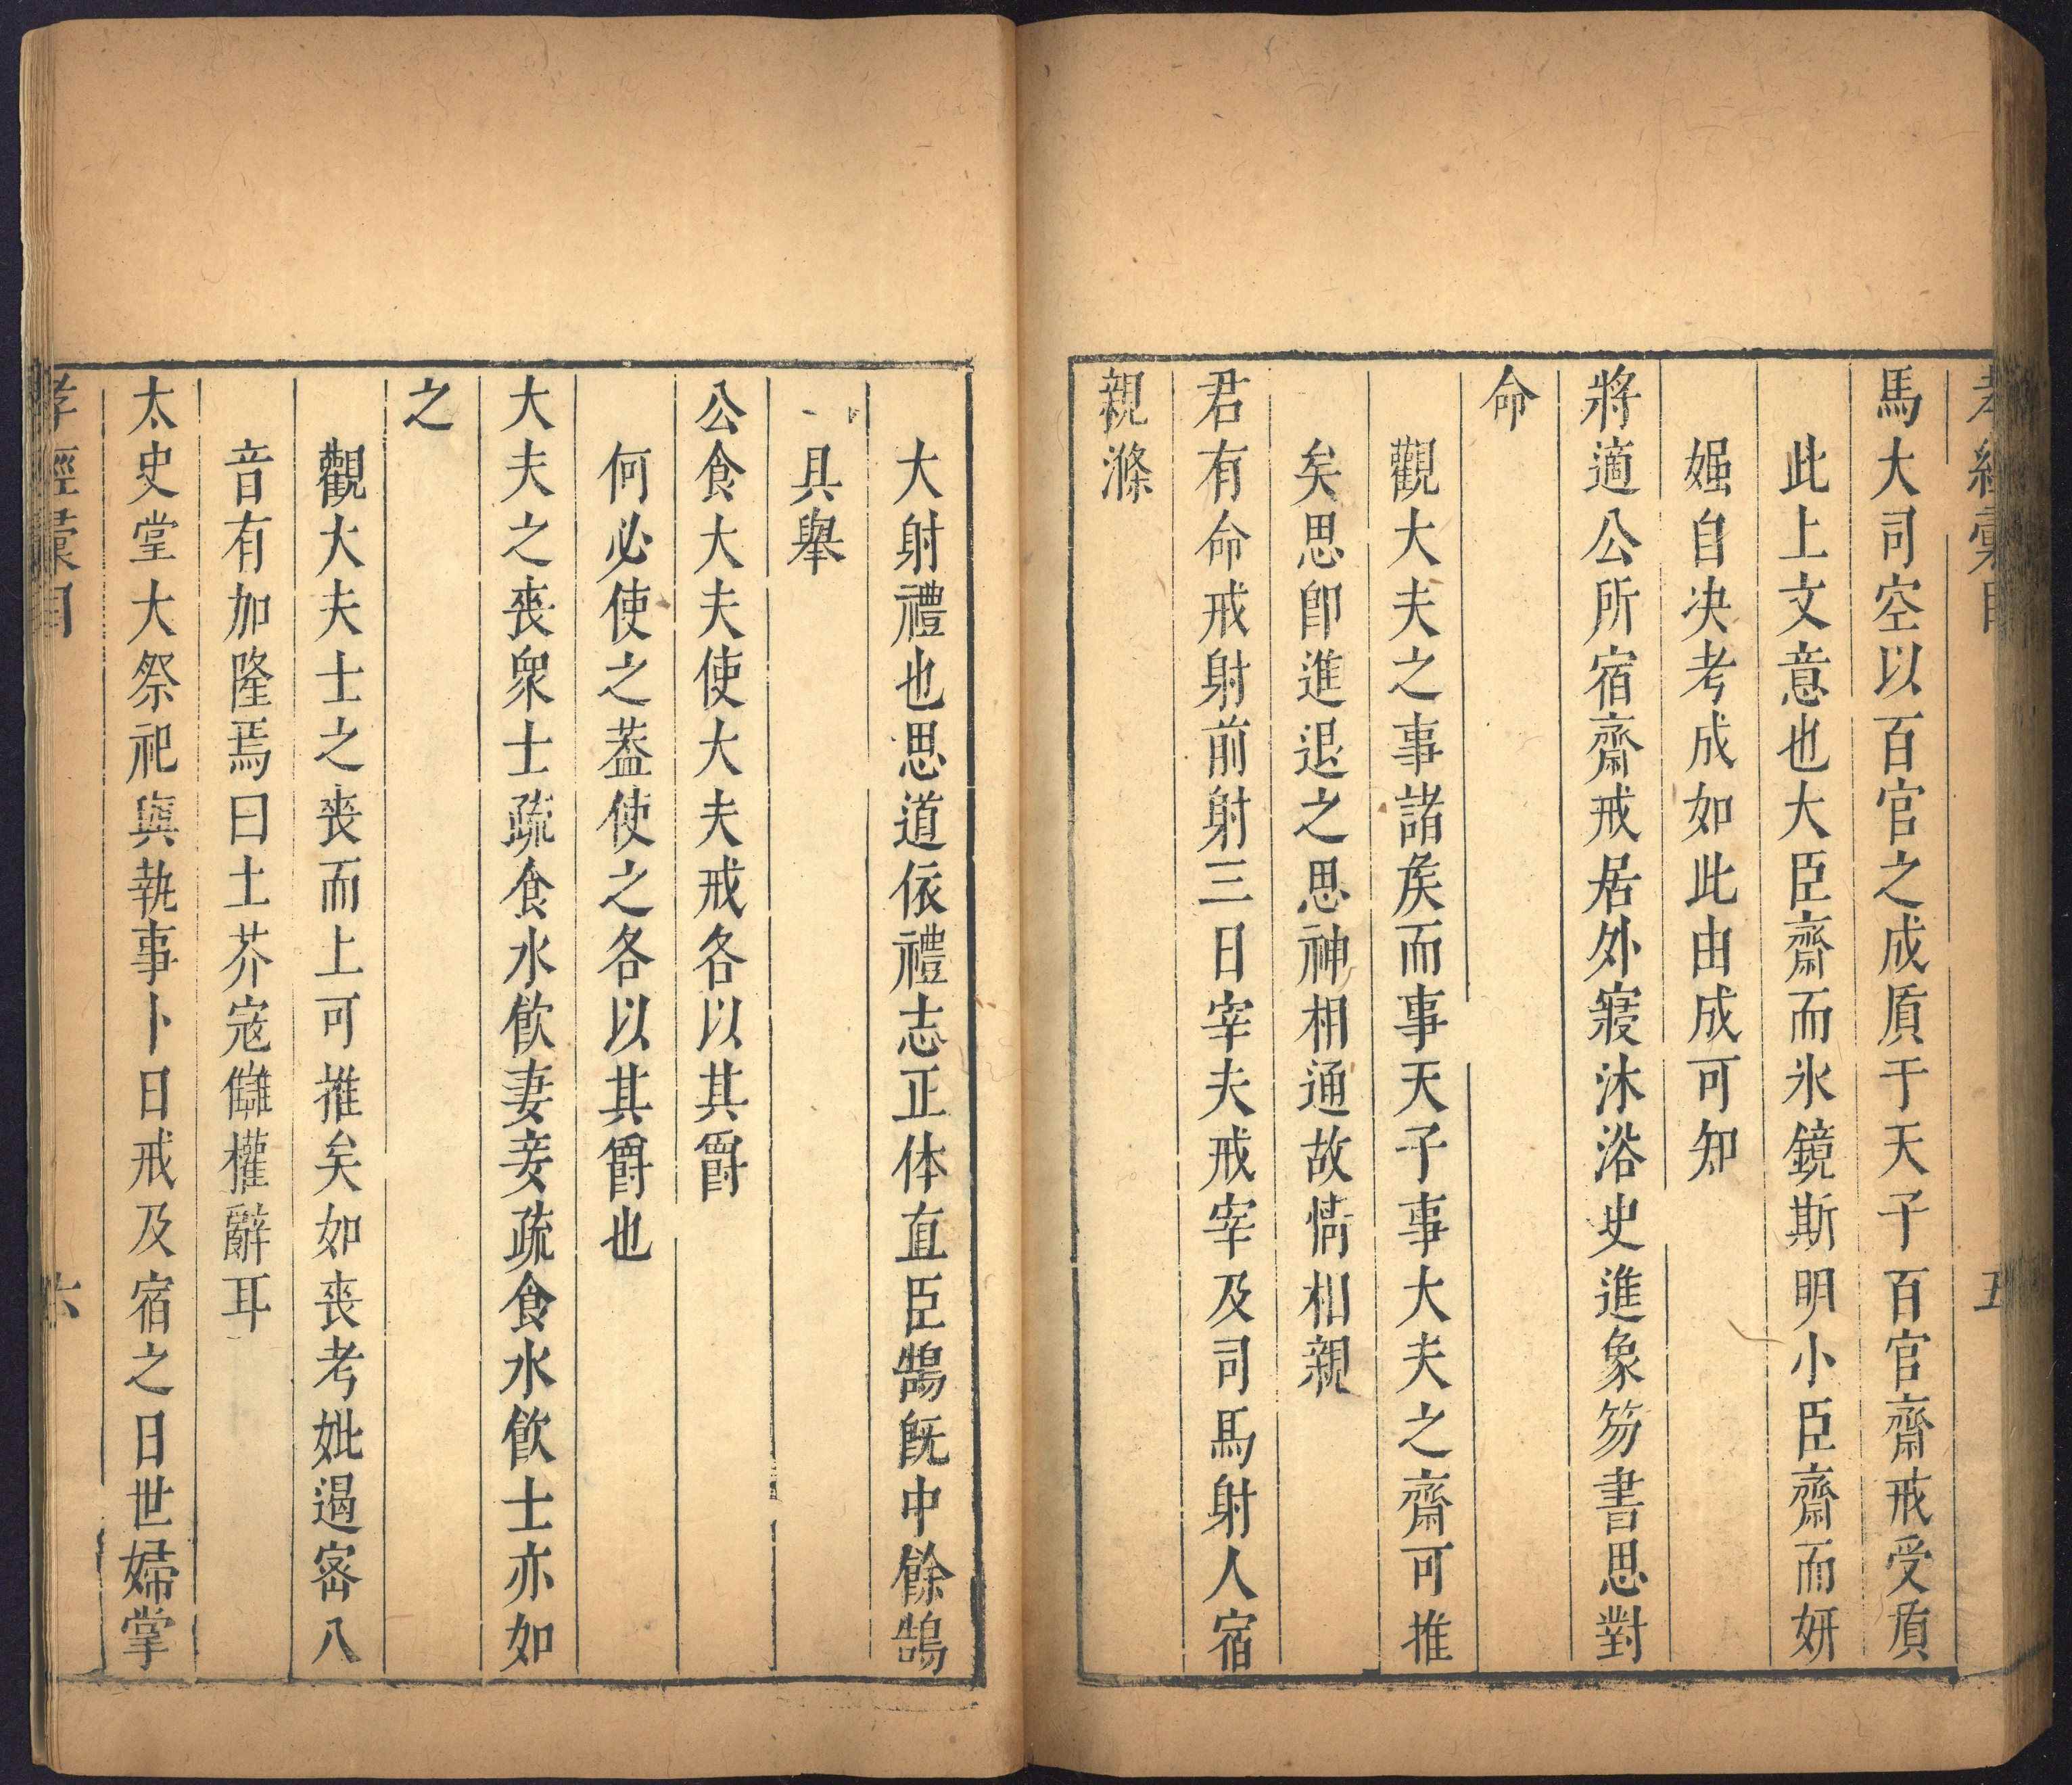 馬大司空以百官之成質于天子百官齋戒受質
此上文意也大臣齋而氷鏡斯明小臣齋而妍
媸自决考成如此由成可知
將適公所宿齋戒居外寢沐浴史進象笏書思對
命
觀大夫之事諸矦而事天子事大夫之齋可推
矣思卽進退之思神相通故情相親
君有命戒射前射三日宰夫戒宰及司馬射人宿
視滌
大射禮也思道依禮志正体直臣鵠旣中餘鵠
具舉
公食大夫使大夫戒各以其爵
何必使之葢使之各以其爵也
大夫之丧衆士疏食水飲妻妾疏食水飲士亦如
之
觀大夫士之丧而上可推矣如丧考妣遏宻八
音有加隆焉曰土芥寇讎權辭耳
太史堂大祭祀與執事卜日戒及宿之日世婦掌
孝經彙目
六